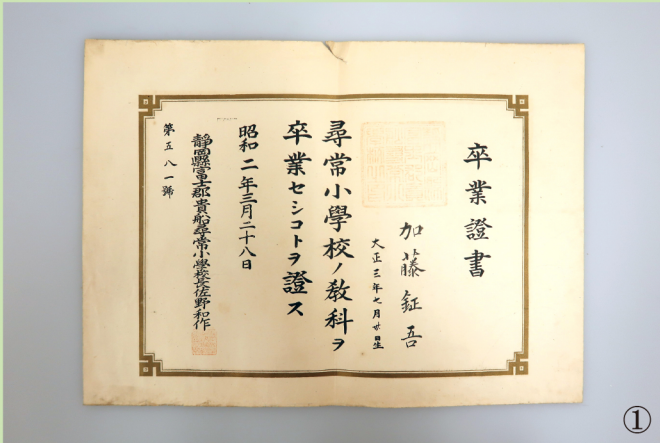 卒業證書
加藤鉦吾
大正三年七月廿日生
尋常小學校ノ教科ヲ
卒業セシコトヲ證ス
昭和二年三月二十八日
靜岡縣富士郡貴船尋常小學校長佐野和作
第五八一號
①